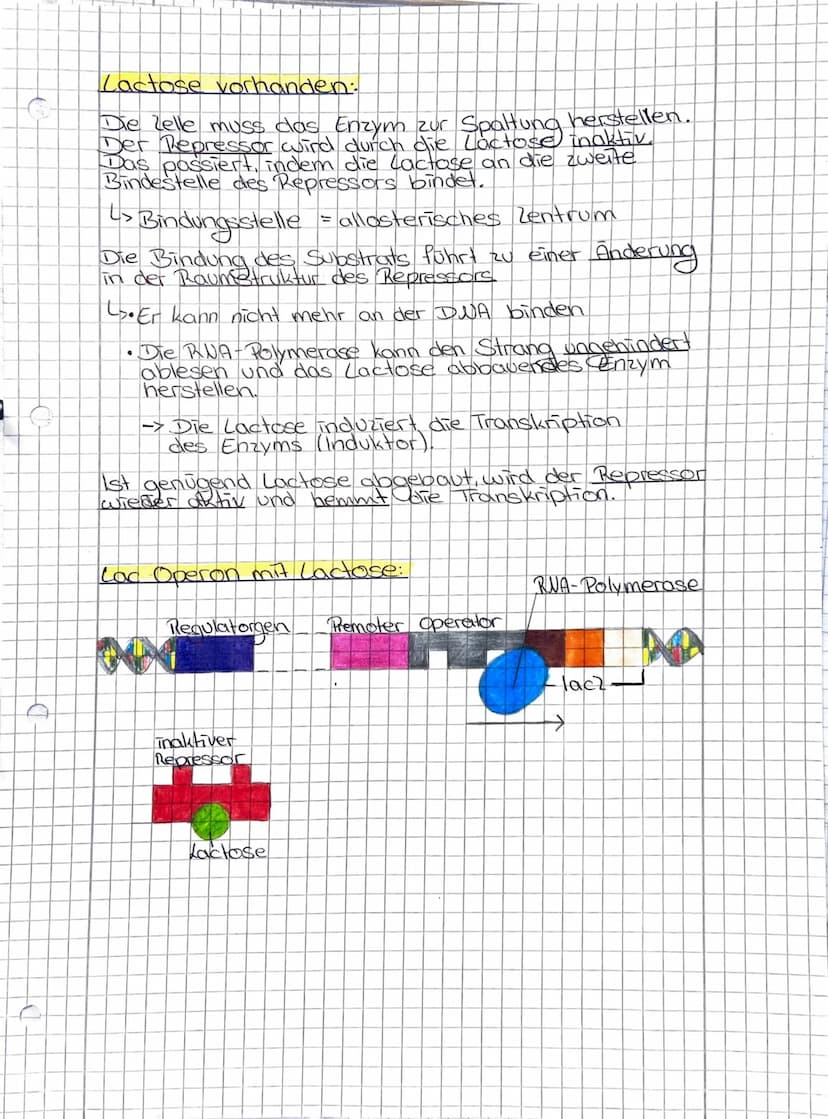 Lactose vorhanden:
Die Zelle muss das Enzym zur Spaltung herstellen.
Der Repressor wird durch die Lactose inaktiv.
Das passiert, indem die Lactose an die zweite
Bindestelle des Repressors bindet.
↳ Bindungsstelle = allosterisches Zentrum
Die Bindung des Substrats führt zu einer Änderung
in der Raumstruktur des Repressors
↳ • Er kann nicht mehr an der DNA binden
• Die RNA-Polymerase kann den Strang ungehindert
ablesen und das Lactose abbauendes Enzym
herstellen.
→ Die Lactose induziert die Transkription
des Enzyms (Induktor).
Ist genügend Lactose abgebaut, wird der Repressor
wieder aktiv und hemmt die Transkription.
Lac Operon mit Lactose:
RNA-Polymerase
Regulatorgen Promoter Operator
lacZ
inaktiver
Repressor
Lactose